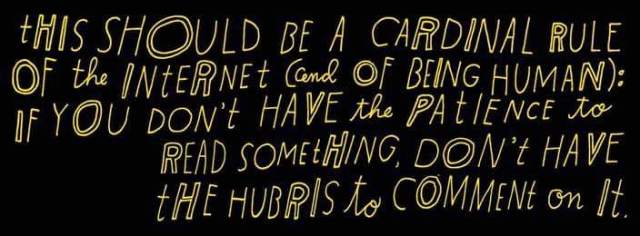 tHIS SHOULD BE A CARDINAL RULE
OF the INTERNEt (and OF BEING HUMAN):
IF YOU DON't HAVE the PAtIENCE to
READ SOMEtHING, DON't HAVE
tHE HUBRIS to COMMENt on It.